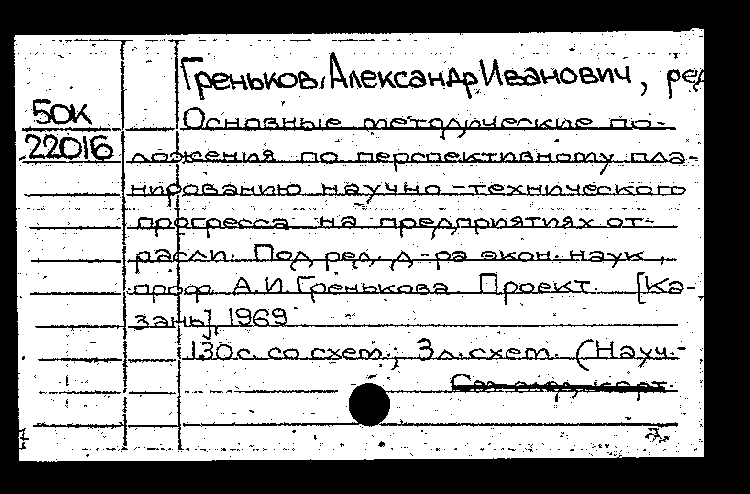 Греньков, Александр Иванович, ред
50К
22016
Основные методические по-
ложения по перспективному пла-
нированию научно-технического
прогресса на предприятиях от-
расли. Под ред. д-ра экон. наук,
проф. А.И. Гренькова Проект. [Ка-
зань], 1969
130с. со схем.; 3л. схем. (Науч.-
См. след. карт.